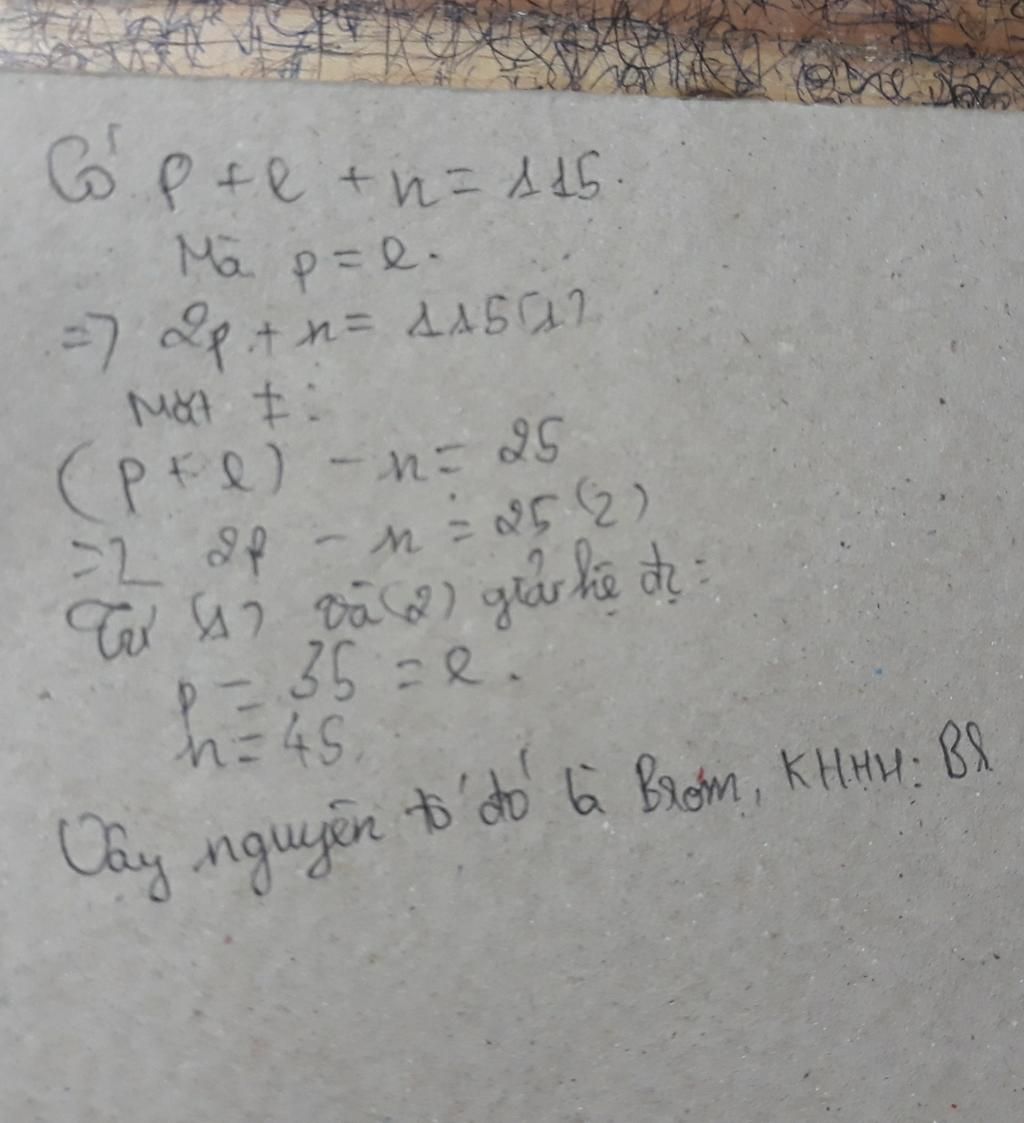 Có p + e + n = 115.
Mà p = e.
=> 2p + n = 115 (1)
Mặt ≠:
(p + e) - n = 25
=> 2p - n = 25 (2)
Từ (1) và (2) giải hệ đc:
p = 35 = e.
n = 45.
Vậy nguyên tố đó là Brom, KHHH: Br